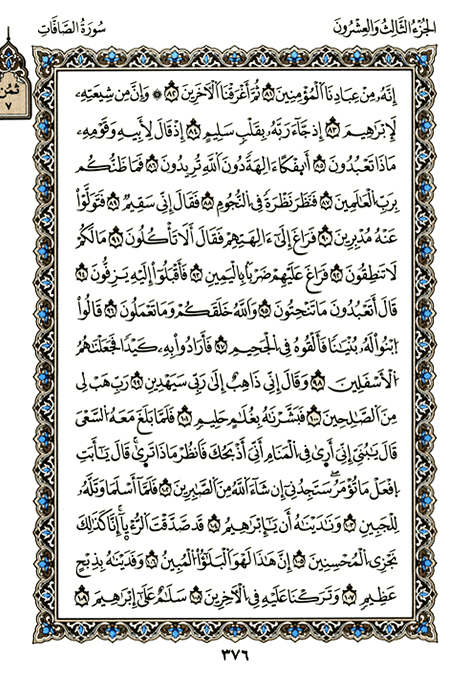 الجُزْءُ الثَّالِثُ وَالعِشْرُونَ
سُورَةُ الصَّافَّاتِ
ثُمُن
٧
إِنَّهُۥ مِنْ عِبَادِنَا ٱلْمُؤْمِنِينَ ٨١ ثُمَّ أَغْرَقْنَا ٱلْآخَرِينَ ٨٢ ۞ وَإِنَّ مِن شِيعَتِهِۦ
لَإِبْرَاهِيمَ ٨٣ إِذْ جَآءَ رَبَّهُۥ بِقَلْبٍ سَلِيمٍ ٨٤ إِذْ قَالَ لِأَبِيهِ وَقَوْمِهِۦ
مَاذَا تَعْبُدُونَ ٨٥ أَئِفْكًا ءَالِهَةً دُونَ ٱللَّهِ تُرِيدُونَ ٨٦ فَمَا ظَنُّكُم
بِرَبِّ ٱلْعَٰلَمِينَ ٨٧ فَنَظَرَ نَظْرَةً فِي ٱلنُّجُومِ ٨٨ فَقَالَ إِنِّي سَقِيمٌ ٨٩ فَتَوَلَّوْا
عَنْهُ مُدْبِرِينَ ٩٠ فَرَاغَ إِلَىٰٓ ءَالِهَتِهِمْ فَقَالَ أَلَا تَأْكُلُونَ ٩١ مَا لَكُمْ
لَا تَنطِقُونَ ٩٢ فَرَاغَ عَلَيْهِمْ ضَرْبًۢا بِٱلْيَمِينِ ٩٣ فَأَقْبَلُوٓا۟ إِلَيْهِ يَزِفُّونَ ٩٤
قَالَ أَتَعْبُدُونَ مَا تَنْحِتُونَ ٩٥ وَٱللَّهُ خَلَقَكُمْ وَمَا تَعْمَلُونَ ٩٦ قَالُوا۟
ٱبْنُوا۟ لَهُۥ بُنْيَٰنًا فَأَلْقُوهُ فِي ٱلْجَحِيمِ ٩٧ فَأَرَادُوا۟ بِهِۦ كَيْدًا فَجَعَلْنَٰهُمُ
ٱلْأَسْفَلِينَ ٩٨ وَقَالَ إِنِّي ذَاهِبٌ إِلَىٰ رَبِّي سَيَهْدِينِ ٩٩ رَبِّ هَبْ لِي
مِنَ ٱلصَّٰلِحِينَ ١٠٠ فَبَشَّرْنَٰهُ بِغُلَٰمٍ حَلِيمٍ ١٠١ فَلَمَّا بَلَغَ مَعَهُ ٱلسَّعْيَ
قَالَ يَٰبُنَيِّ إِنِّيَ أَرَىٰ فِي ٱلْمَنَامِ أَنِّيَ أَذْبَحُكَ فَٱنظُرْ مَاذَا تَرَىٰ قَالَ يَٰٓأَبَتِ
ٱفْعَلْ مَا تُؤْمَرُ سَتَجِدُنِيَ إِن شَآءَ ٱللَّهُ مِنَ ٱلصَّٰبِرِينَ ١٠٢ فَلَمَّآ أَسْلَمَا وَتَلَّهُۥ
لِلْجَبِينِ ١٠٣ وَنَٰدَيْنَٰهُ أَن يَٰٓإِبْرَٰهِيمُ ١٠٤ قَدْ صَدَّقْتَ ٱلرُّءْيَآ إِنَّا كَذَٰلِكَ
نَجْزِي ٱلْمُحْسِنِينَ ١٠٥ إِنَّ هَٰذَا لَهُوَ ٱلْبَلَٰٓؤُا۟ ٱلْمُبِينُ ١٠٦ وَفَدَيْنَٰهُ بِذِبْحٍ
عَظِيمٍ ١٠٧ وَتَرَكْنَا عَلَيْهِ فِي ٱلْآخِرِينَ ١٠٨ سَلَٰمٌ عَلَىٰٓ إِبْرَٰهِيمَ ١٠٩
٣٧٦